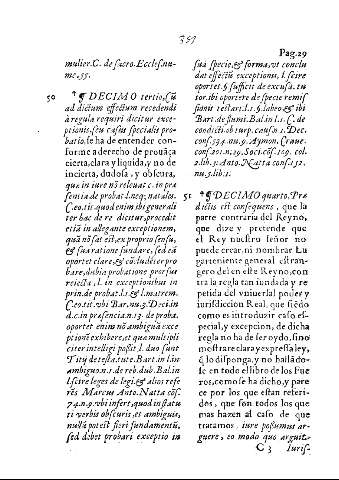 351
Pag.29
mulier.C. de sacro. Eccles. nu-
me. 55.
50 ¶ DECIMO tertio, sũ
ad dictum effectum recedendi
à regula requiri dicitur exce-
ptionis, seu casus specialis pro-
batio, se ha de entender con-
forme a derecho de prouãça
cierta, clara y liquida, y no de
incierta, dudosa, y obscura,
quæ in iure nõ releuat c. in præ
sentia de probat. l. neq; natales.
C. eo. tit. quod enim ibi generali
ter hac de re dicitur, procedit
etiã in allegante exceptionem,
quã nõ sat est, ex proprio sensu,
& sua ratione fundare, sed eã
oportet clare, & cõcludẽter pro
bare, dubia probatione prorsus
reiecta, l. in exceptionibus in
prin. de probat. l. 1. & l. matrem.
C. eo. tit. vbi Bar. nu. 3. Deci. in
d.c. in præsencia. n. 13. de proba.
oportet enim nõ ambiguã exce
ptionẽ exhibere, et quæ multipli
citer intelligi possit l. duo sunt
Titij de testa. tute. Bart. in l. in
ambiguo. n. 1. de reb. dub. Bal. in
l. scire leges de legi. & alios refe
rẽs Marcus Anto. Natta cõs.
74. n. 9. vbi infert, quod in statu
ti verbis obscuris, es ambiguis,
nulla potest fieri fundamentũ,
sed debet probari exceptio in
suá specie, & forma, vt conclu
dat effectũ exceptionis, l. scire
oportet. § sufficit de excusa. tu
tor. ibi oportere de specie remis
sionis testari. l. 1. § labeo. & ibi
Bart. de flumi. Bal. in l. 5. C. de
condicti. ob turp. causã n. 1. Dec.
cons. 534. nu. 9. Aymon. Craue.
cons. 201. n. 19. Soci. cõs. 109. col.
2. lib. 3. Anto. Natta cons. 152.
nu. 3. lib. 1.
51 ¶ DECIMO quarto, Præ
dictis est consequens, que la
parte contraria del Reyno,
que dize y pretende que
el Rey nuestro señor no
puede crear, ni nombrar Lu
garteniente general estran-
gero del en este Reyno, con
tra la regla tan fundada y re
petida del vniuersal poder y
jurisdiccion Real, que siẽdo
como es introducir caso es-
pecial, y excepcion, de dicha
regla no ha de ser oydo, sino
mostrare clara y expressa ley,
q̃ lo disponga, y no hallãdo-
se en todo el libro de los Fue
ros, como se ha dicho, y pare
ce por los que estan referi-
dos, que son todos los que
mas hazen al caso de que
tratamos, iure possumus ar-
guere, eo modo quo arguit-
C 3 Iuris-